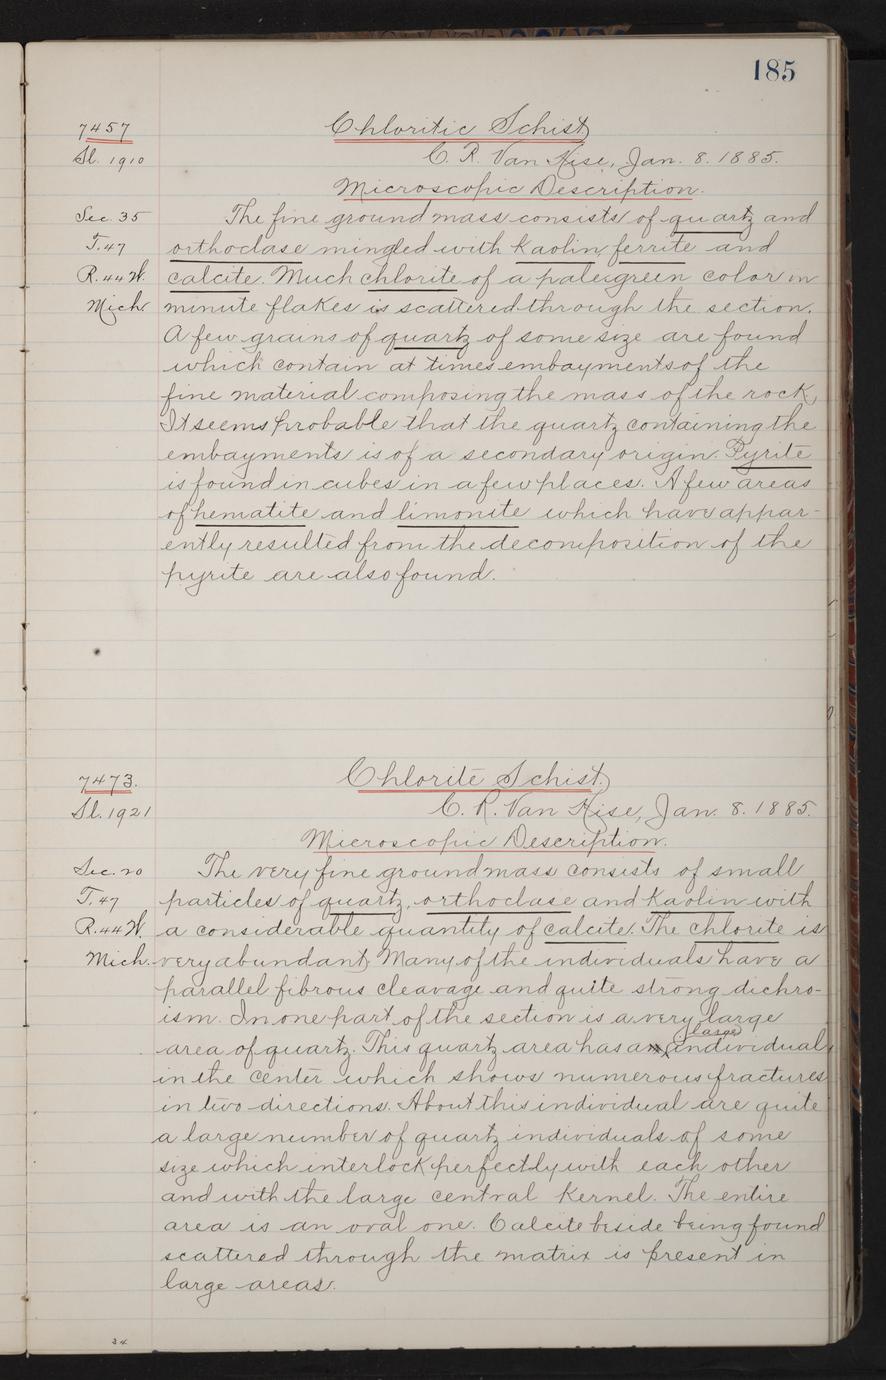 185
7457
Chloritic Schist
Sl. 1910
C. R. Van Hise, Jan. 8. 1885.
Microscopic Description.
Sec. 35
The fine ground mass consists of quartz and
T. 47
orthoclase mingled with kaolin, ferrite and
R. 44 W.
calcite. Much chlorite of a pale green color in
Mich.
minute flakes is scattered through the section.
A few grains of quartz of some size are found
which contain at times embayments of the
fine material composing the mass of the rock,
It seems probable that the quartz containing the
embayments is of a secondary origin. Pyrite
is found in cubes in a few places. A few areas
of hematite and limonite which have appar-
ently resulted from the decomposition of the
pyrite are also found.
7473.
Chlorite Schist.
Sl. 1921
C. R. Van Hise, Jan. 8. 1885.
Microscopic Description.
Sec. 20
The very fine ground mass consists of small
T. 47
particles of quartz, orthoclase and kaolin with
R. 44 W.
a considerable quantity of calcite. The chlorite is
Mich.
very abundant. Many of the individuals have a
parallel fibrous cleavage and quite strong dichro-
ism. In one part of the section is a very large
large
area of quartz. This quartz area has a individual
in the center which shows numerous fractures
in two directions. About this individual are quite
a large number of quartz individuals of some
size which interlock perfectly with each other
and with the large central kernel. The entire
area is an oval one. Calcite beside being found
scattered through the matrix is present in
large areas.
34